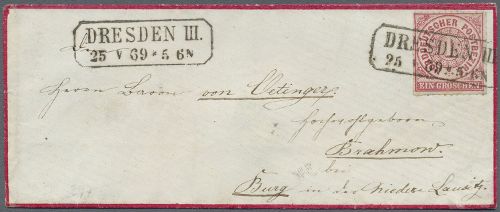 DRESDEN III.
25 V 69 * 5. 6N
DRESDEN III
25 69 * 5. 6N
NORDDEUTSCHER POSTBEZIRK
EIN GROSCHEN
Herrn Baron von Oetinger
hochwohlgeboren
Brahmow.
bei
Burg in der Nieder Lausitz.